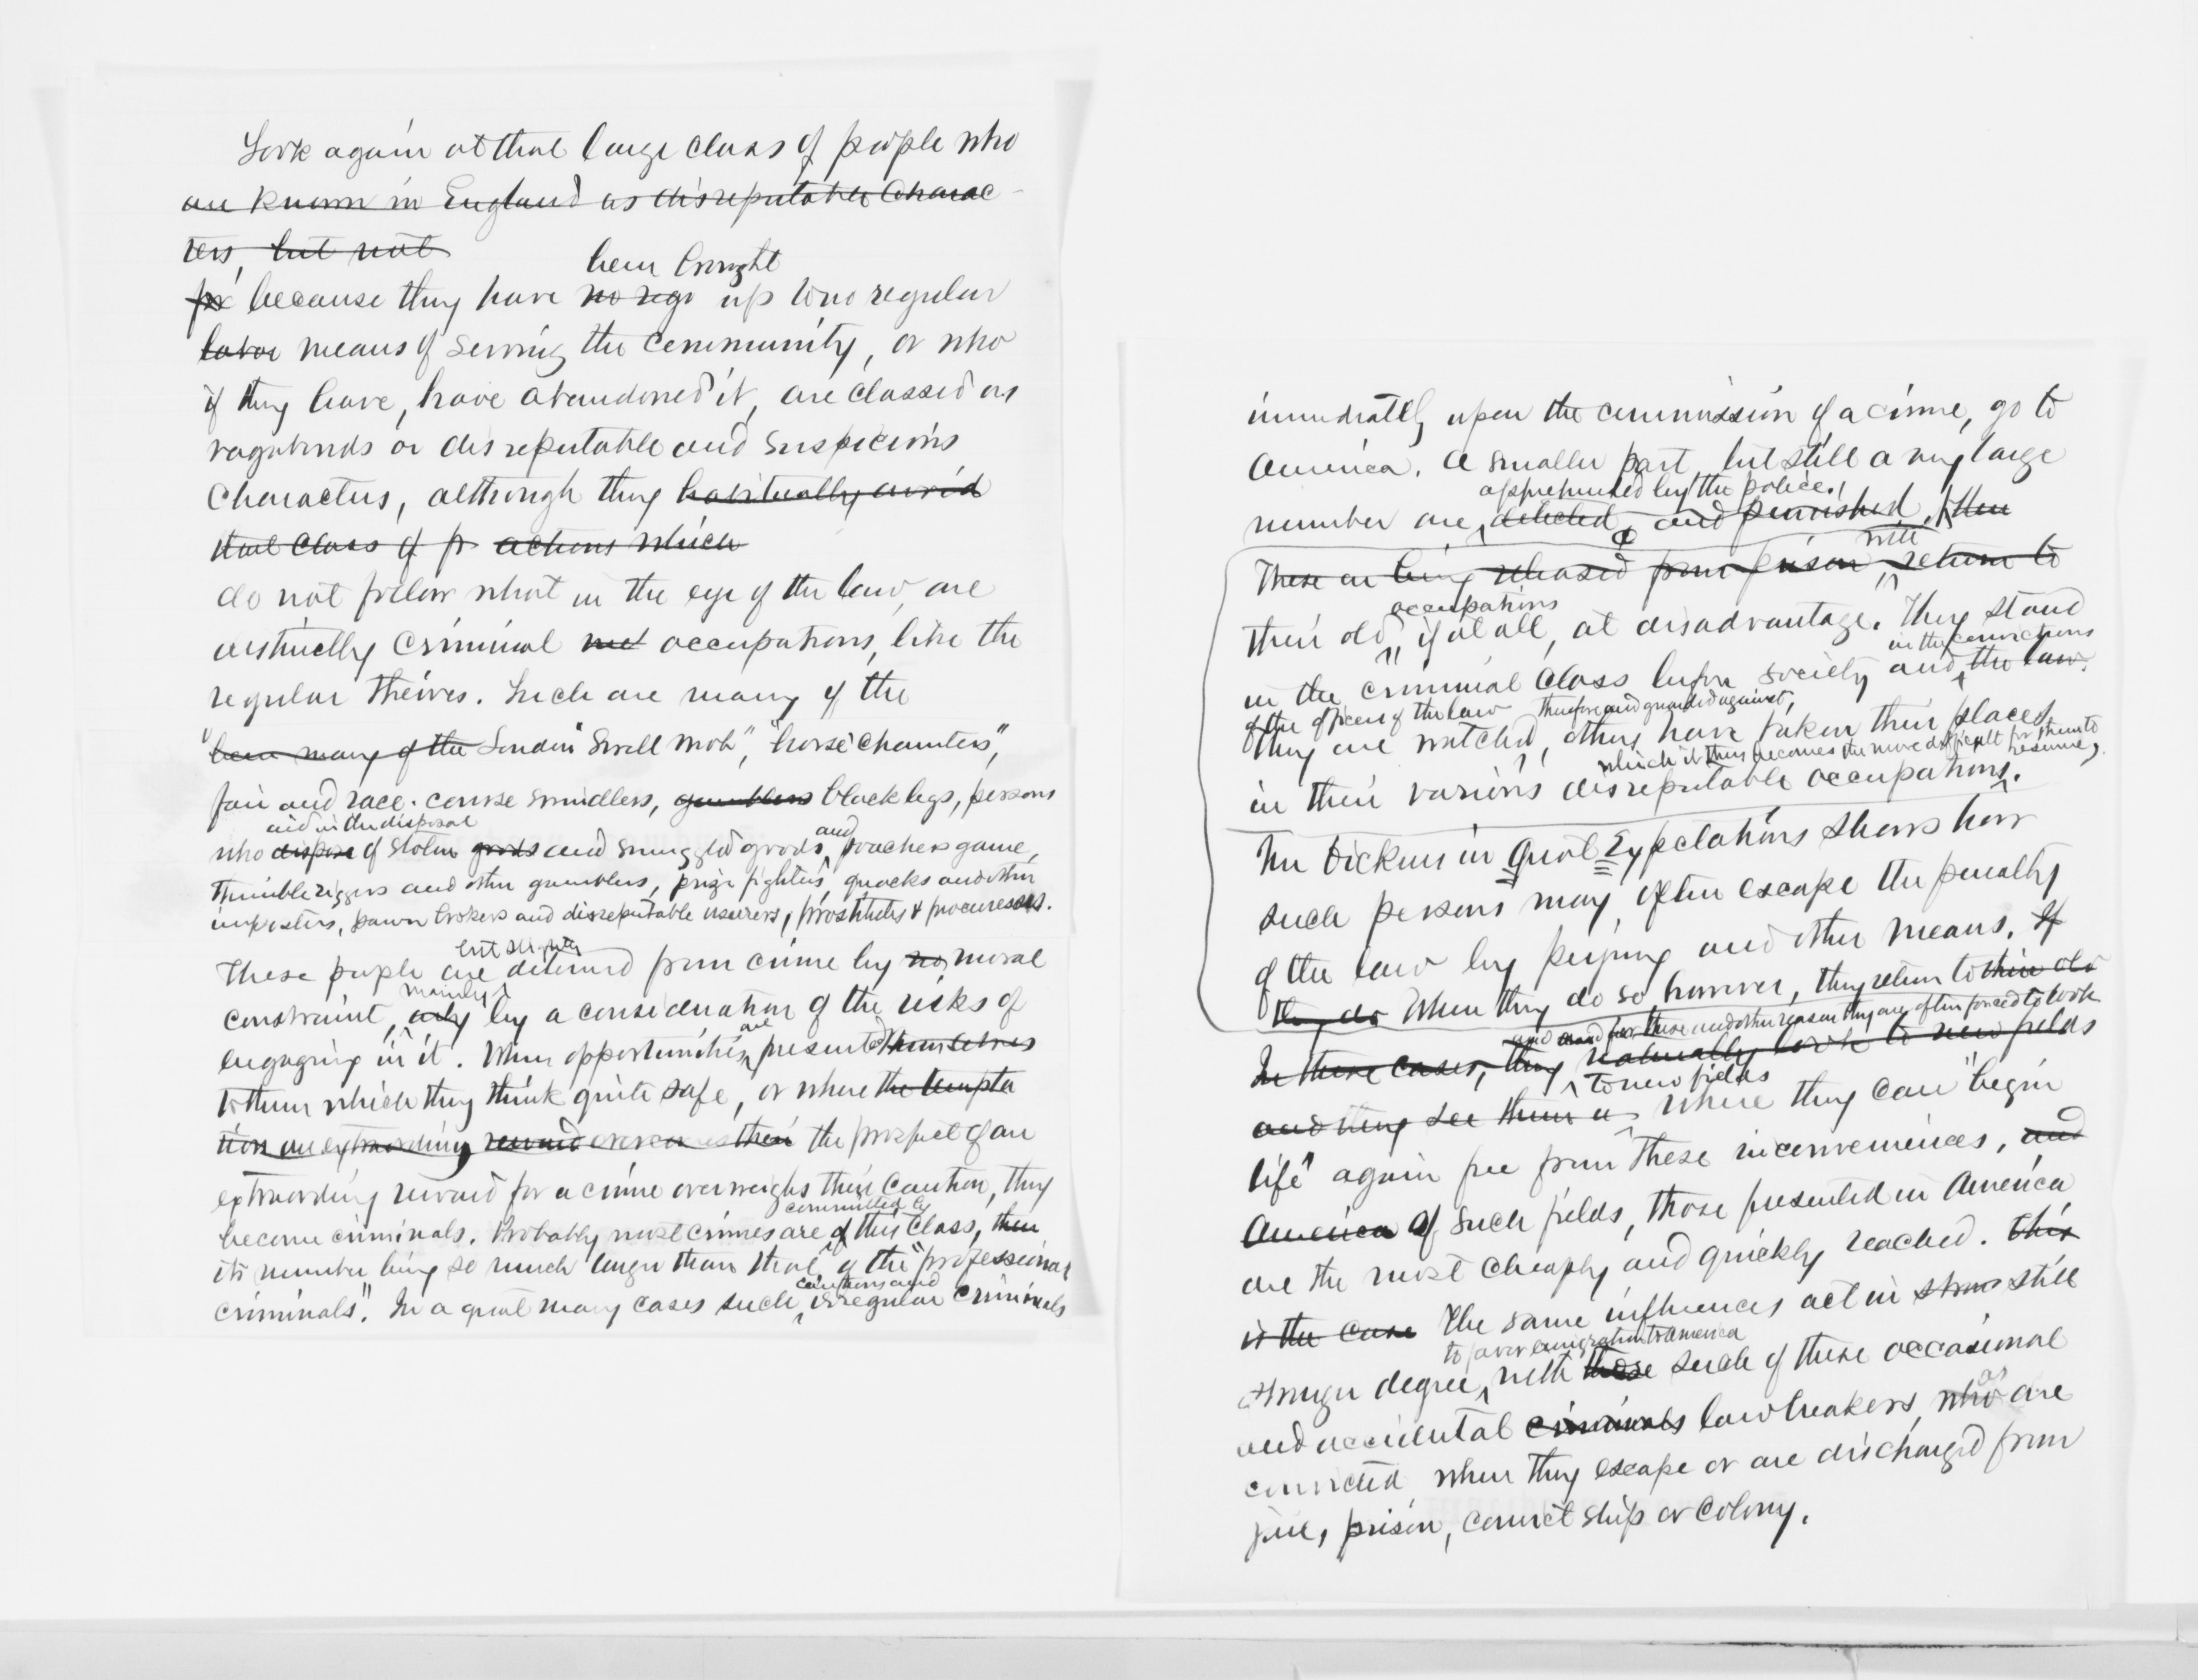 Look again at that large class of people who
are known in England as disreputable charac-
ters, but not
been brought
for because they have no regu up to no regular
labor means of serving the community, or who
if they have, have abandoned it, are classed as
vagabonds or disreputable and suspicious
characters, although they habitually avoid
that class of pr actions which
do not follow what in the eye of the law, are
distinctly criminal occupations, like the
regular theives. Such are many of the
been many of the London "Swell Mob", "horse chaunters",
fair and race-course swindlers, gamblers blacklegs, persons
aid in the disposal
who dispose of stolen goods and smuggled goods, and poachers game,
thimbleriggers and other gamblers, prize fighters, quacks and other
imposters, pawn brokers and disreputable usurers, prostitutes & procuresses.
but slightly
These people are deterred from crime by no moral
mainly
constraint, only by a consideration of the risks of
are
engaging in it. When opportunities presented themselves
to them which they think quite safe, or where the tempta
tion an extraordinary reward overcomes their the prospect of an
extraordinary reward for a crime overweighs their caution, they
committed by
become criminals. Probably most crimes are of this class, then
its number being so much larger than that of the "professional
cautious and
criminals". In a great many cases such irregular criminals
immediately upon the commission of a crime, go to
America. A smaller part, but still a very large
apprehended by the police.
number are detected, and punished, & then
will
These on being released from prison, return to
occupations
their old, if at all, at disadvantage. They stand
in the convictions
in the criminal class before society and the law.
of the officers of the law therefore and guarded against,
They are watched, others have taken their places
which it thus becomes the more difficult for them to resume,
in their various disreputable occupations.
Mr Dickens in Great Expectations shows how
such persons may often escape the penalty
of the law by peeping and other means. If
they do When they do so, however, they return to their old
and for these and other reasons they are often forced to look
In these cases, they naturally look to new fields
to new fields
and they see them a where they can "begin
life" again free from these inconveniences, and
America Of such fields, those presented in America
are the most cheaply and quickly reached. This
is the case The same influences act in still
to favor emigration to America
stronger degree, with those such of these occasional
as
and accidental criminals lawbreakers, who are
convicted when they escape or are discharged from
jail, prison, convict ship or colony.